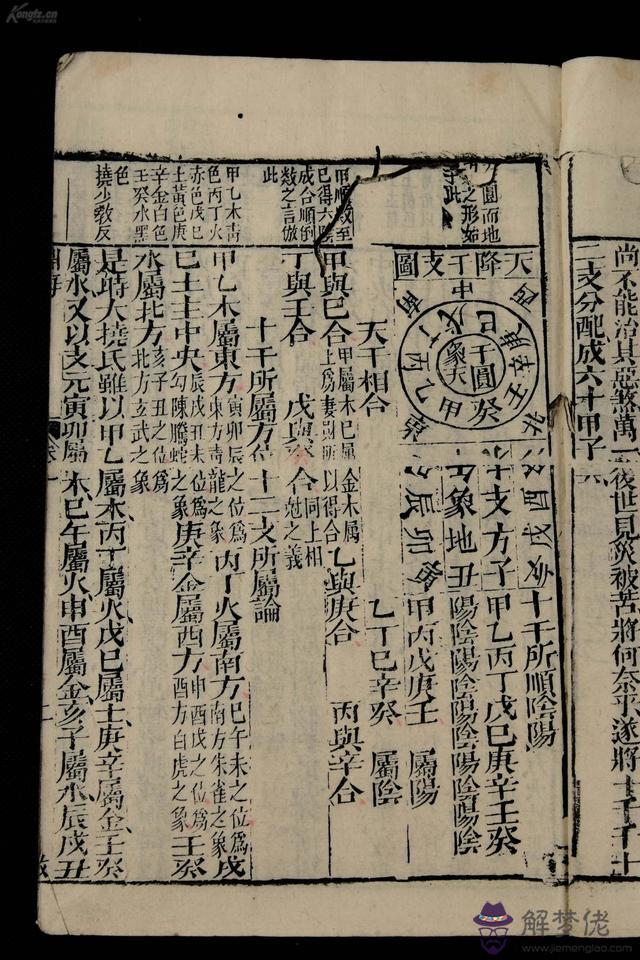 Kongfz.cn
尚不能治其惡煞萬一後世見災被苦將何奈乎遂將十千十
二支分配成六十甲子
圓而地
之形如
此
甲順數至
己得六陰
成合順倒
數之言倣
此
甲乙木青
色丙丁火
赤色戊己
土黃色庚
辛金白色
壬癸水黑
色
撓少敎反
天降干支圖
干圓
象天
十干所順陰陽
十支方子甲乙丙丁戊己庚辛壬癸
象地丑陽陰陽陰陽陰陽陰陽陰
辰卯寅 甲丙戊庚壬 屬陽
乙丁己辛癸 屬陰
天干相合
甲與己合 甲屬木己屬土爲妻財所以得合 乙與庚合 丙與辛合
丁與壬合 戊與癸合 同上相尅之義
十干所屬方位 十二支所屬論
甲乙木屬東方 寅卯辰之位爲東方靑龍之象 丙丁火屬南方 巳午未之位爲南方朱雀之象 戊
己土主中央 辰戌丑未位爲勾陳騰蛇之象 庚辛金屬西方 申酉戌之位爲西方白虎之象 壬癸
水屬北方 亥子丑之位爲北方玄武之象
是時大撓氏雖以甲乙屬木丙丁屬火戊己屬土庚辛屬金壬癸
屬水又以支元寅卯屬木巳午屬火申酉屬金亥子屬水辰戌丑
淵海
卷一
二
解梦佬
www.jiemenglao.com